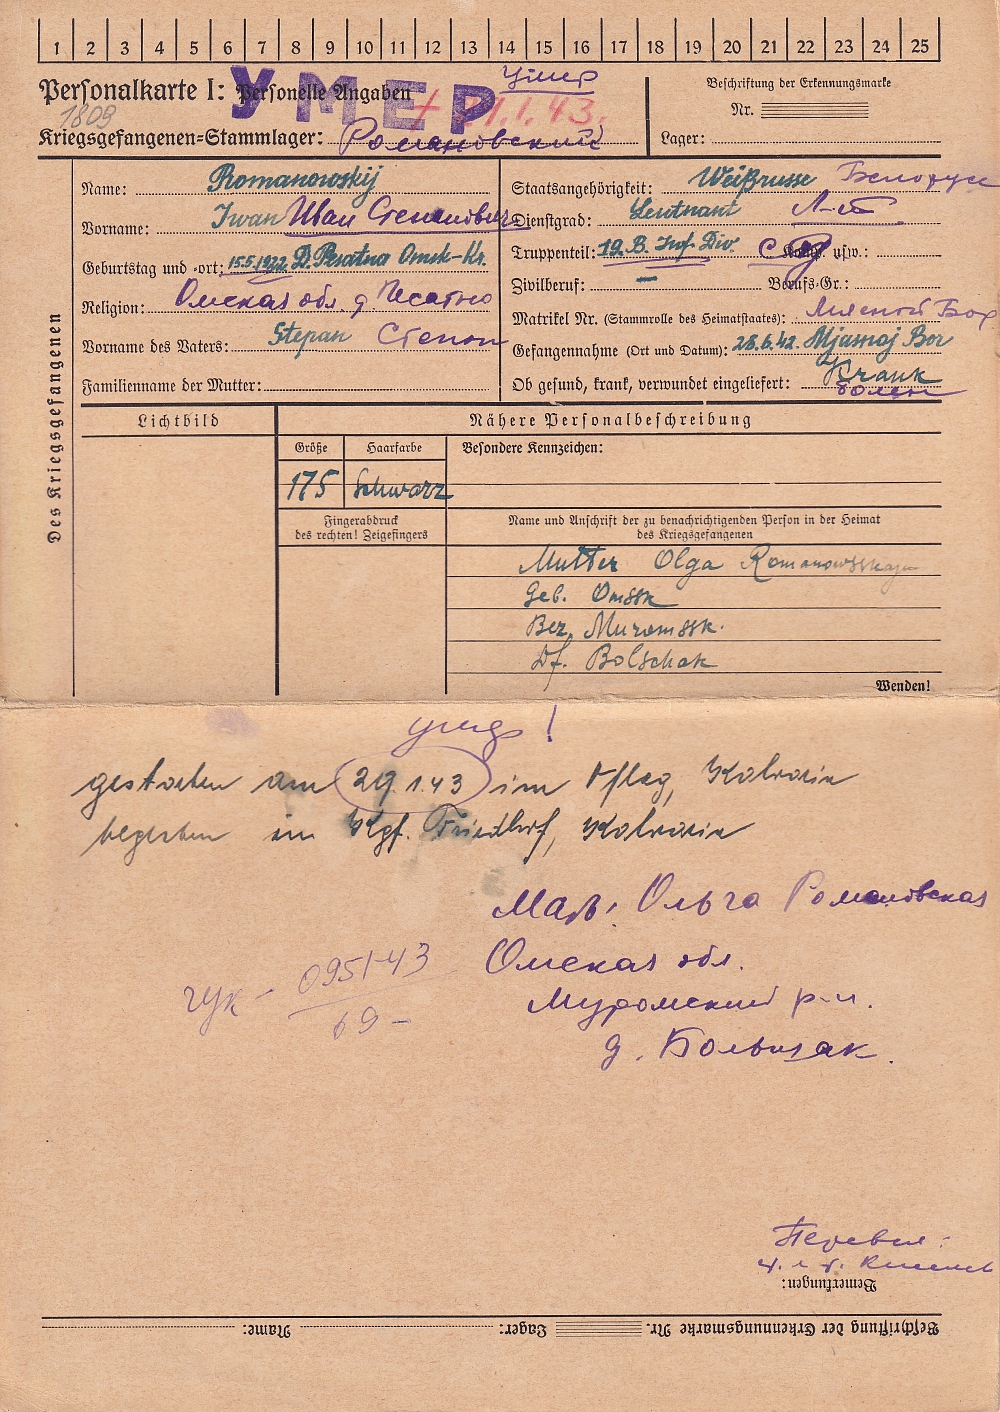 1 2 3 4 5 6 7 8 9 10 11 12 13 14 15 16 17 18 19 20 21 22 23 24 25
Personalkarte I: Personelle Angaben
УМЕР
умер
1.43.
Beschriftung der Erkennungsmarke
Nr.
1809
Kriegsgefangenen=Stammlager: Романовский
Lager:
Des Kriegsgefangenen
Name: Romanowskij
Vorname: Iwan Иван Степанович
Geburtstag und -ort: 15.5.1922. D. Pesatna Omsk-Kr.
Religion: Омская обл. д. Песатно
Vorname des Vaters: Stepan Степан
Familienname der Mutter:
Staatsangehörigkeit: Weißrusse Белорус
Dienstgrad: Leutnant Л-т
Truppenteil: 19. B. Inf. Div. Komp. usw.:
Zivilberuf: — Berufs-Gr.:
Matrikel Nr. (Stammrolle des Heimatstaates): Мясной Бор
Gefangennahme (Ort und Datum): 28.6.42. Mjasnoj Bor
Ob gesund, krank, verwundet eingeliefert: Krank
болен
Lichtbild
Nähere Personalbeschreibung
Größe Haarfarbe Besondere Kennzeichen:
175 Schwarz
Fingerabdruck
des rechten! Zeigefingers
Name und Anschrift der zu benachrichtigenden Person in der Heimat
des Kriegsgefangenen
Mutter Olga Romanowsskaja
Geb. Omssk
Bez. Muromssk.
Df. Bolschak
Wenden!
умер!
gestorben am 29.1.43 im Pfleg, Kalvaria
begraben im Kgf. Friedhof, Kalvaria
Мать: Ольга Романовская
Омская обл.
Муромский р-н.
д. Большак.
0951-43
69-
Перевел:
Bemerkungen:
Beschriftung der Erkennungsmarke Nr. Lager: Name: